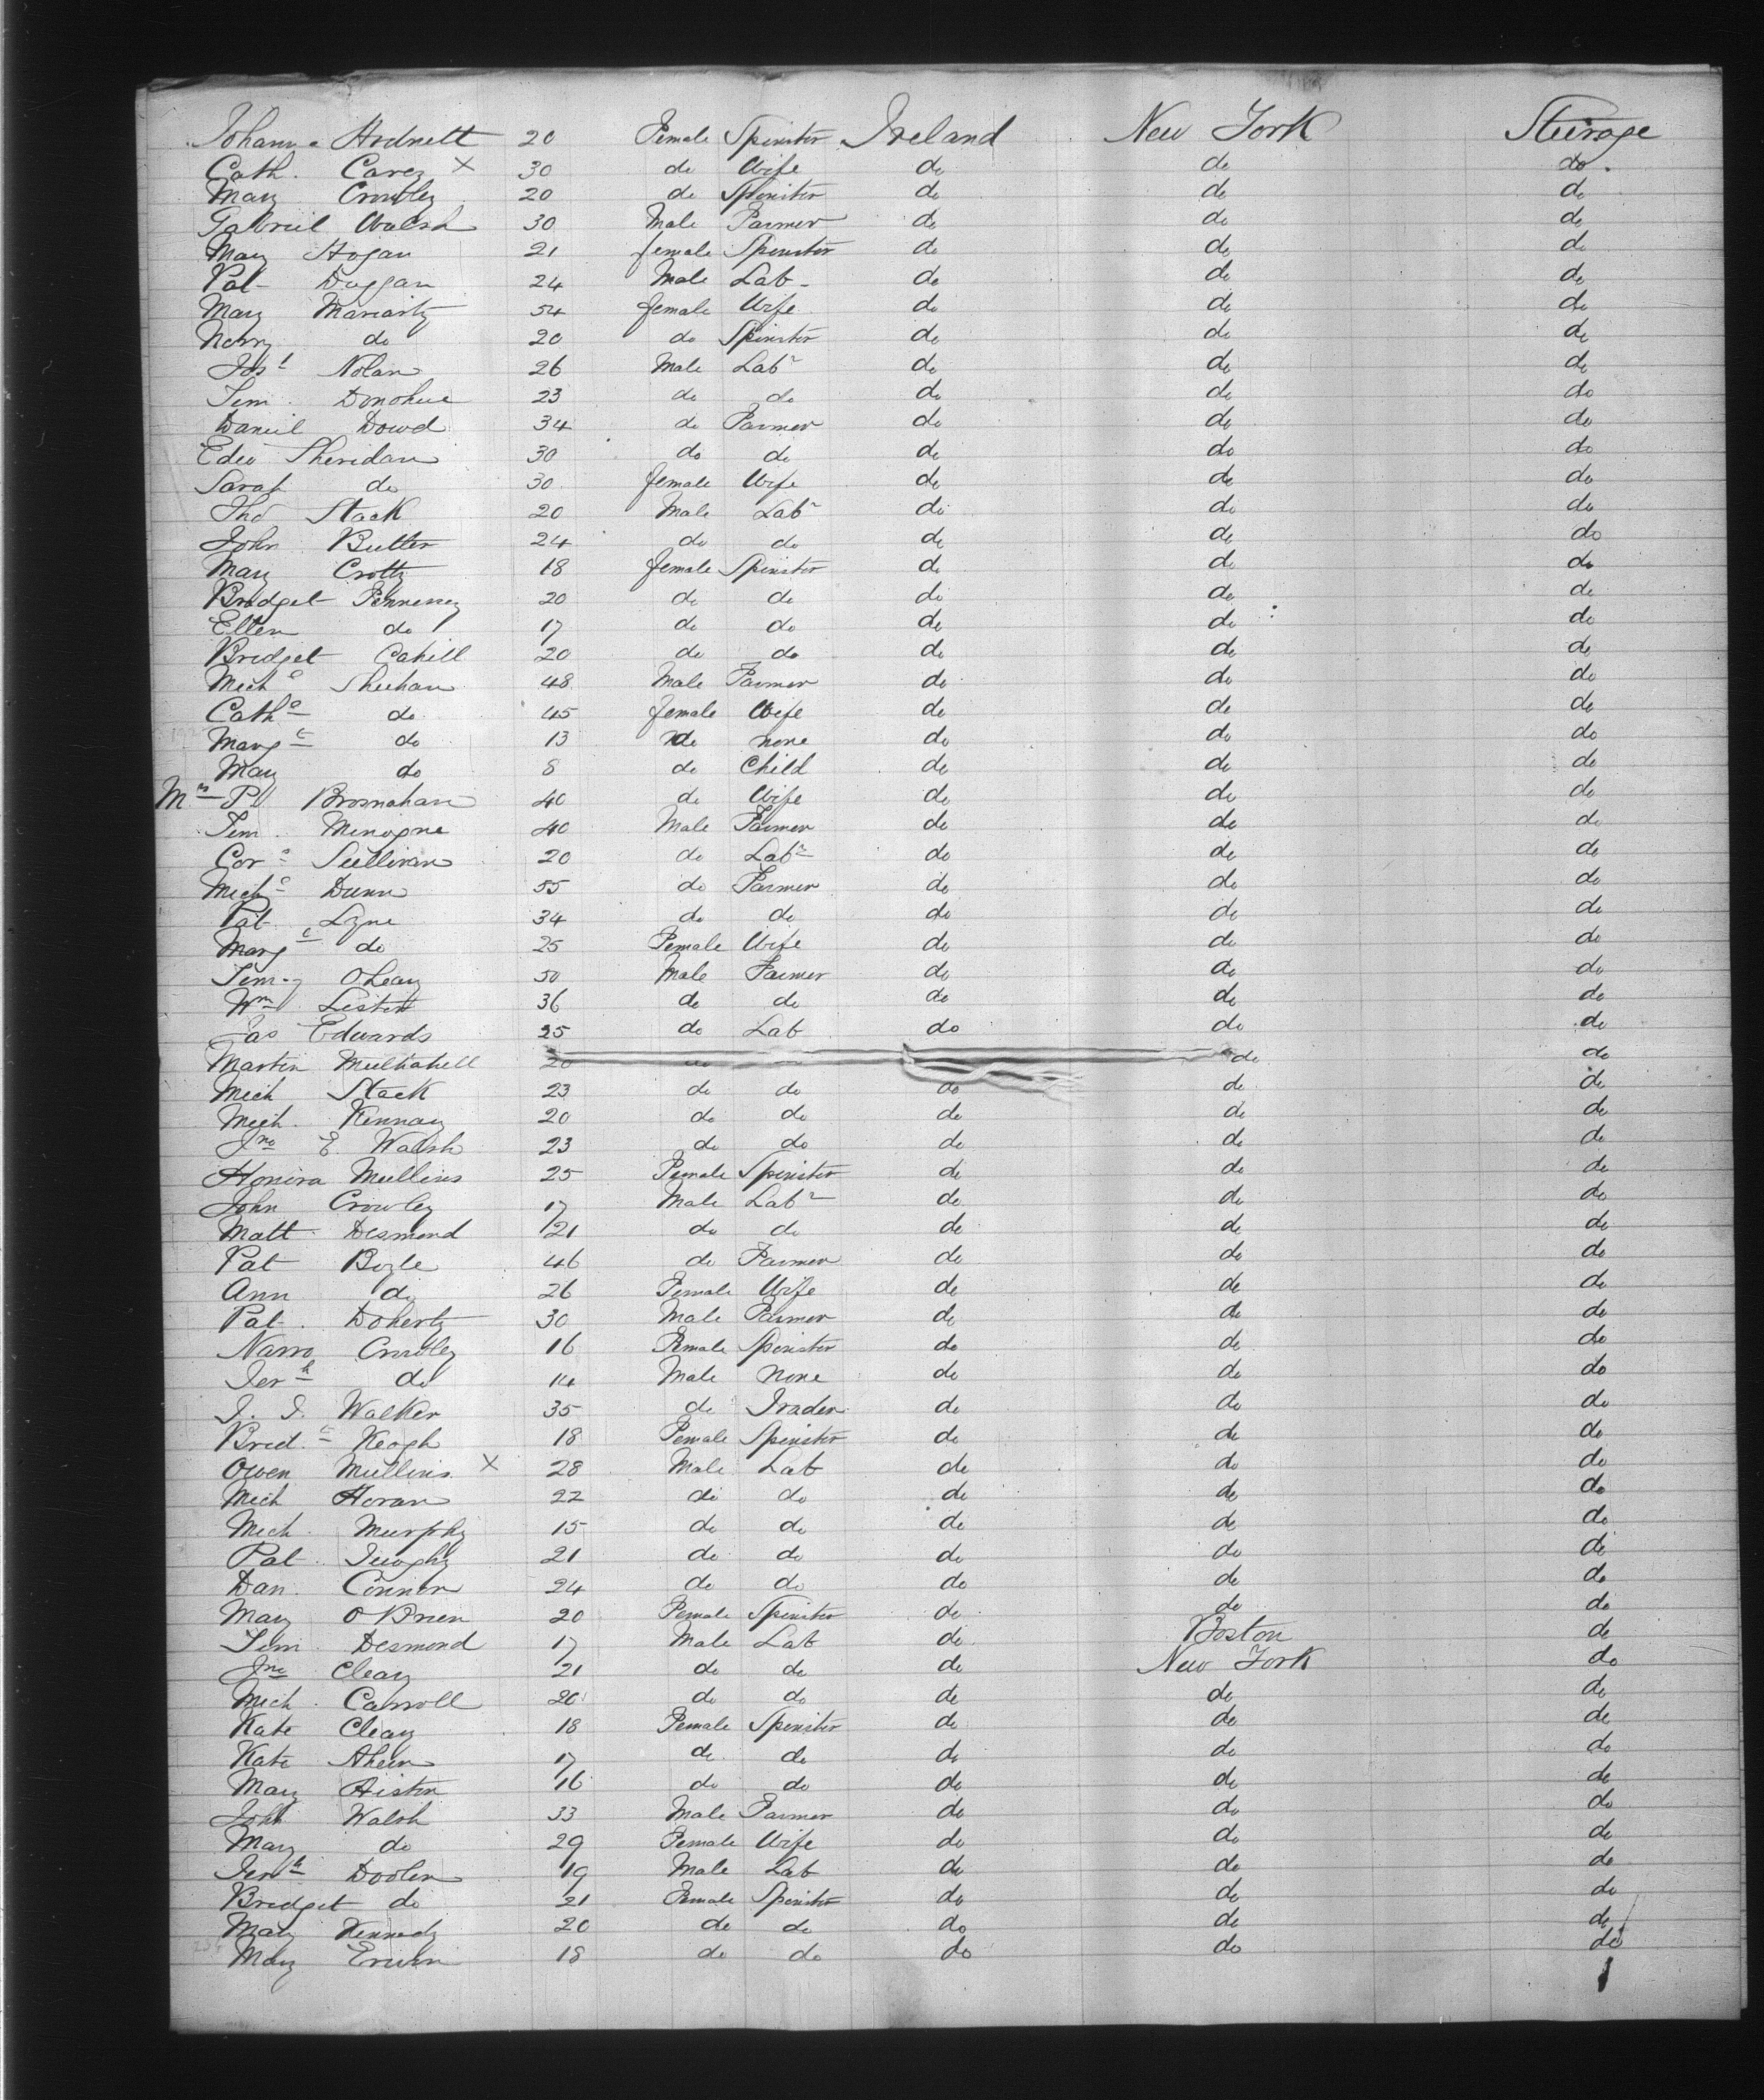 Johanna Hodnett 20 Female Spinster Ireland New York Steirage
Cath. Carey × 30 do Wife do do do
Mary Crowley 20 do Spinster do do do
Gabriel Walsh 30 Male Farmer do do do
Mary Hogan 21 female Spinster do do do
Pat Duggan 24 Male Lab do do do
Mary Mariarty 54 female Wife do do do
Norry do 20 do Spinster do do do
Jos Nolan 26 Male Labr do do do
Tim. Donohue 23 do do do do do
Daniel Dowd 34 do Farmer do do do
Edw Sheridan 30 do do do do do
Sarah do 30 female Wife do do do
Tho Stack 20 Male Labr do do do
John Butler 24 do do do do do
Mary Crotty 18 female Spinster do do do
Bridget 20 do do do do do
Ellen do 17 do do do do do
Bridget Cahill 20 do do do do do
Michl Sheehan 48 Male Farmer do do do
Cathe do 45 female Wife do do do
Margt do 13 do none do do do
Mary do 8 do Child do do do
Mrs P Brosnahan 40 do Wife do do do
Tim. Minogue 40 Male Farmer do do do
Cors Sullivan 20 do Labr do do do
Michl Dunn 55 do Farmer do do do
Pat Lyne 34 do do do do do
Margt do 25 Female Wife do do do
Timy OLeary 50 Male Farmer do do do
Wm Liston 36 do do do do do
Jas Edwards 25 do Lab do do do
Martin Mulhahill 20 do do do
Mich Stack 23 do do do do do
Mich. Kennay 20 do do do do do
Jno E. Walsh 23 do do do do do
Honora Mullins 25 Female Spinster do do do
John Crowley 17 Male Labr do do do
Matt Desmond 21 do do do do do
Pat Boyle 46 do Farmer do do do
Ann do 26 Female Wife do do do
Pat. Doherty 30 Male Farmer do do do
Crowley 16 Female Spinster do do do
Jerh do 14 Male None do do do
J. J. Walker 35 do Trader do do do
Brid.t Keogh 18 Female Spinster do do do
Owen Mullins × 28 Male Lab do do do
Mich Horan 22 do do do do do
Mich. Murphy 15 do do do do do
Pat. Twoghy 21 do do do do do
Dan. Connor 24 do do do do do
Mary O Brien 20 Female Spinster do do do
Tim. Desmond 17 Male Lab do Boston do
Jno Cleary 21 do do do New York do
Mich. Carroll 20 do do do do do
Kate Cleary 18 Female Spinster do do do
Kate Ahern 17 do do do do do
Mary 16 do do do do do
John Walsh 33 Male Farmer do do do
Mary do 29 Female Wife do do do
Jerh Doolen 19 Male Lab do do do
Bridget do 21 Female Spinster do do do
Mary Kennedy 20 do do do do do
Mary Erwin 18 do do do do do